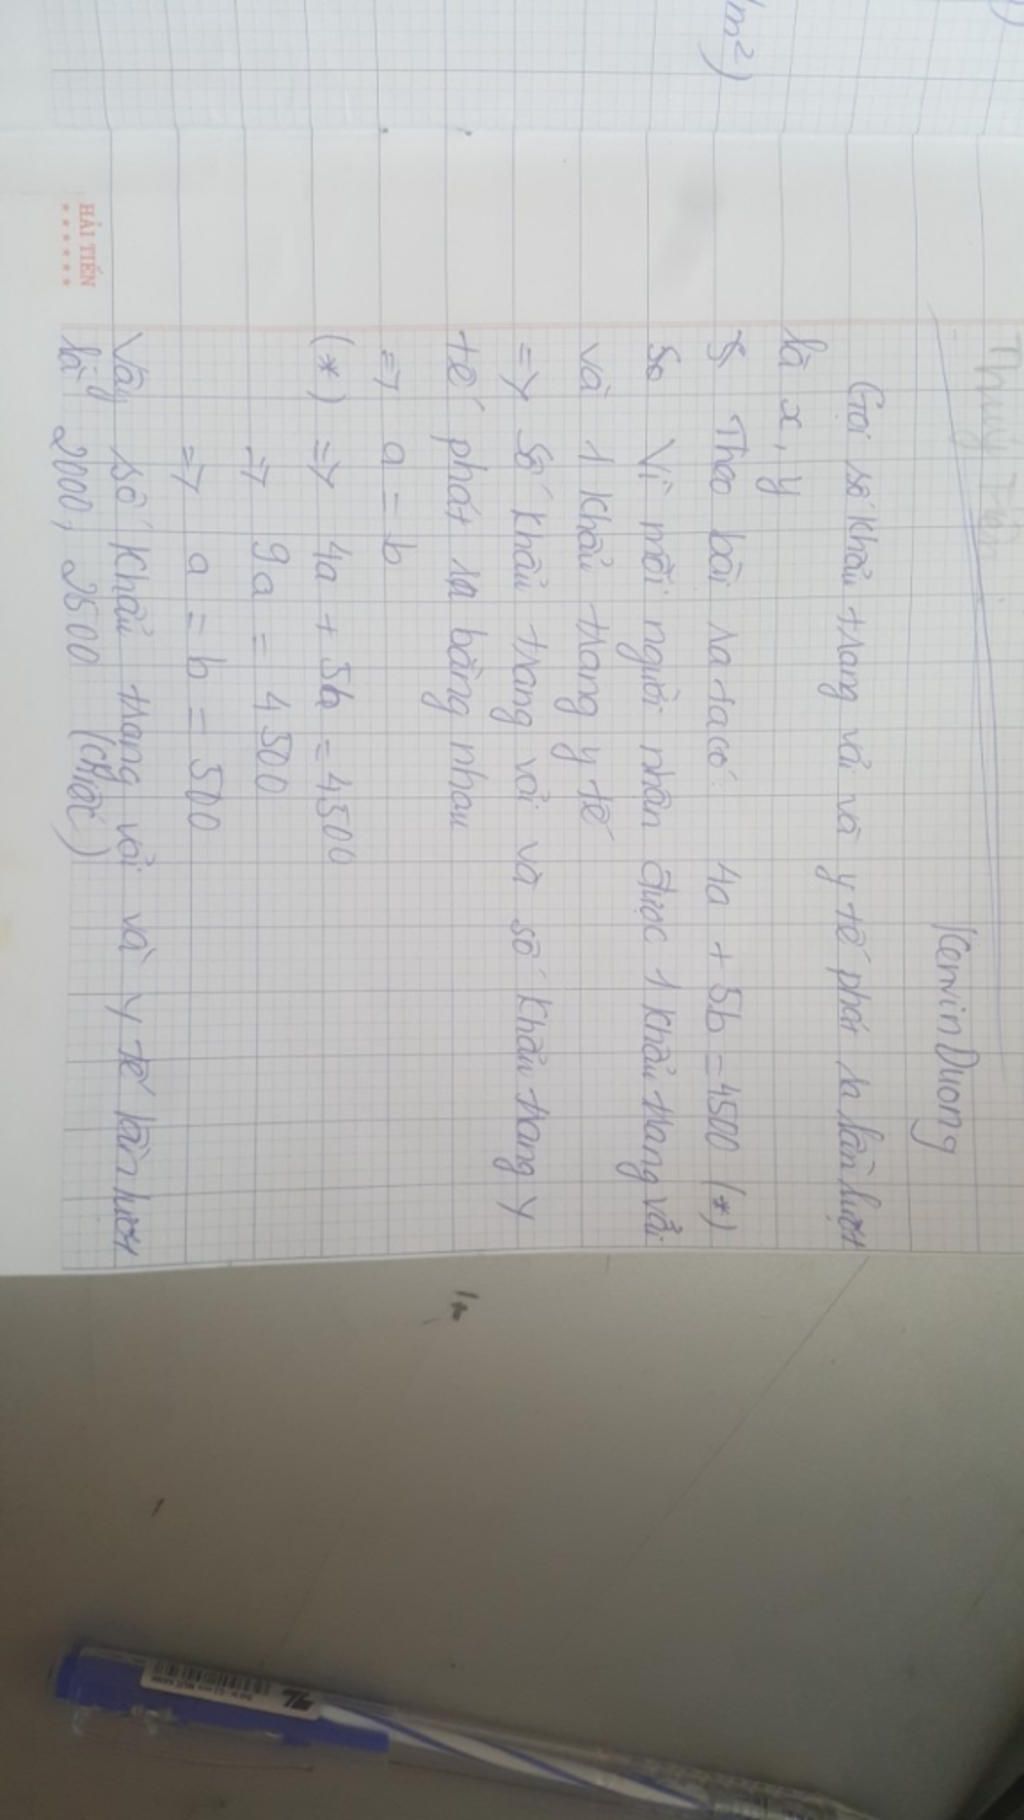 /m²)
HẢI TIẾN
Kenvin Duong
Gọi số khẩu trang vải và y tế phát ra lần lượt
là x, y
Theo bài ra ta có: 4a + 5b = 4500 (*)
Vì mỗi người nhận được 1 khẩu trang vải
và 1 khẩu trang y tế
=> Số khẩu trang vải và số khẩu trang y
tế phát ra bằng nhau
=> a = b
(*) => 4a + 5b = 4500
=> 9a = 4500
=> a = b = 500
Vậy số khẩu trang vải và y tế lần lượt
là 2000, 2500 (chiếc)